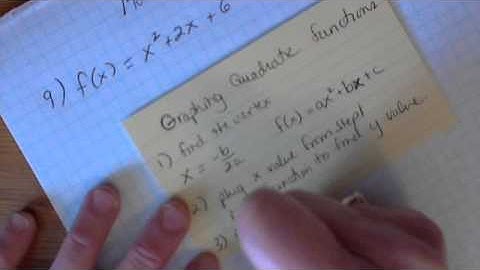 9) f(x) = x² + 2x + 6
Graphing Quadratic Functions
1) find the vertex
x = -b/2a
f(x) = ax² + bx + c
2) plug x value from step 1
function to find y value.
3)